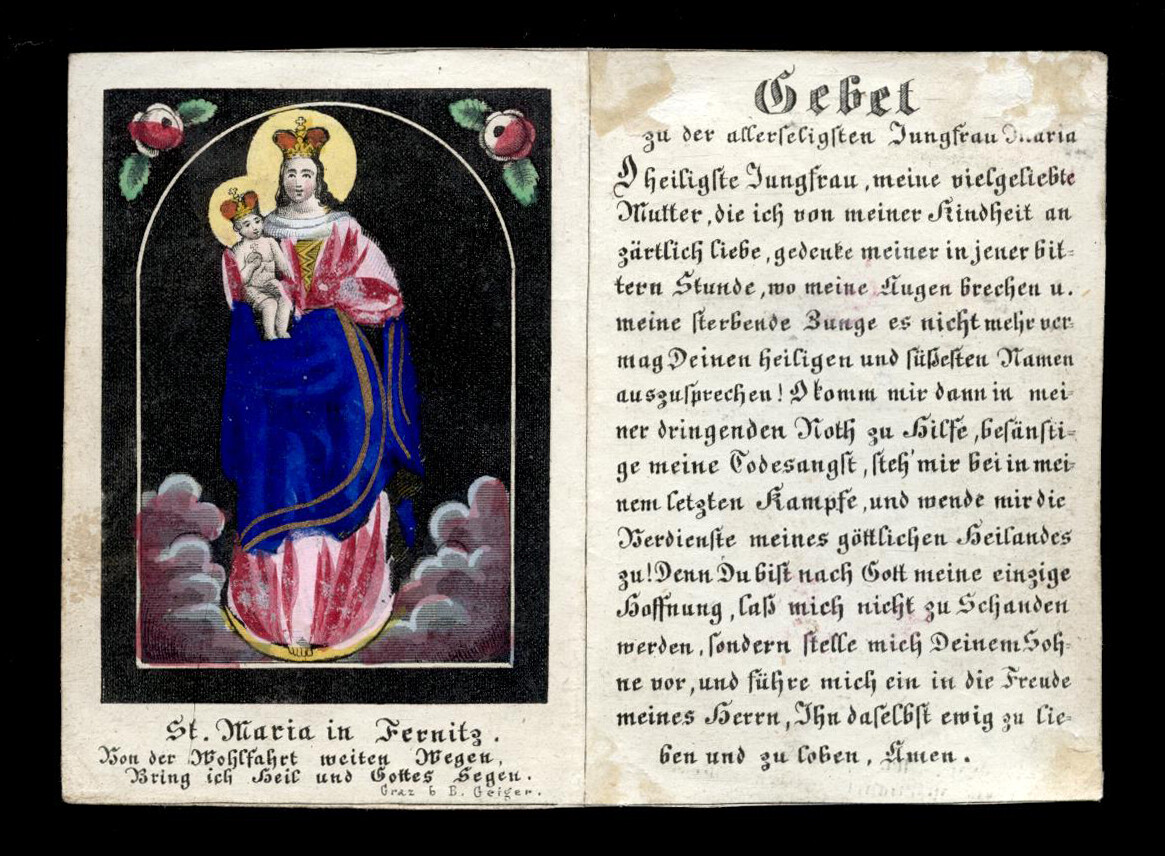 St. Maria in Fernitz.
Von der Wohlfahrt weiten Wegen,
Bring ich Heil und Gottes Segen.
Graz b B. Geiger.
Gebet
zu der allerseligsten Jungfrau Maria
O heiligste Jungfrau, meine vielgeliebte
Mutter, die ich von meiner Kindheit an
zärtlich liebe, gedenke meiner in jener bit-
tern Stunde, wo meine Augen brechen u.
meine sterbende Zunge es nicht mehr ver-
mag Deinen heiligen und süßesten Namen
auszusprechen! O komm mir dann in mei-
ner dringenden Noth zu Hilfe, besänfti-
ge meine Todesangst, steh' mir bei in mei-
nem letzten Kampfe, und wende mir die
Verdienste meines göttlichen Heilandes
zu! Denn Du bist nach Gott meine einzige
Hoffnung, laß mich nicht zu Schanden
werden, sondern stelle mich Deinem Soh-
ne vor, und führe mich ein in die Freude
meines Herrn, Ihn daselbst ewig zu lie-
ben und zu loben, Amen.